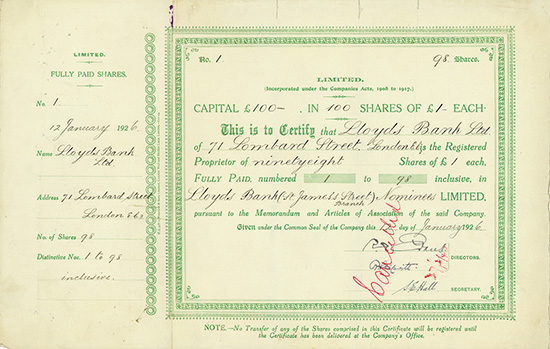 LIMITED.
FULLY PAID SHARES.
No. 1
12 January 1926
Name Lloyds Bank
Ltd.
Address 71 Lombard Street
London E.C.3
No. of Shares 98
Distinctive Nos. 1 to 98
inclusive.
No. 1. 98 Shares.
LIMITED.
(Incorporated under the Companies Acts, 1908 to 1917.)
CAPITAL £100-, IN 100 SHARES OF £1- EACH.
This is to Certify that Lloyds Bank Ltd
of 71 Lombard Street, London E.C.3 is the Registered
Proprietor of ninetyeight Shares of £1 each,
FULLY PAID, numbered 1 to 98 inclusive, in
Lloyds Bank (St James's Street Branch) Nominees LIMITED,
pursuant to the Memorandum and Articles of Association of the said Company.
GIVEN under the Common Seal of the Company this 12 day of January 1926
Cancelled
DIRECTORS.
SECRETARY.
NOTE.—No Transfer of any of the Shares comprised in this Certificate will be registered until
the Certificate has been delivered at the Company's Office.